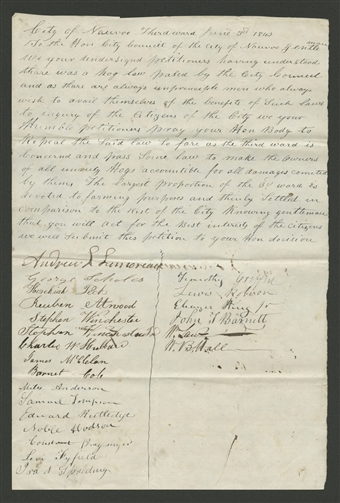 City of Nauvoo Third ward June 3d 1843
To the Hon City Council of the City of Nauvoo Gentlemen
We your undersigned petitioners having understood
thare was a hog law pased by the City Council
and as thare are always unprinciple men who always
wish to avail themselves of the benefits of Such Laws
to injury of the Citizens of the City we your
Humble petitioners pray your Hon Body to
Repeal the Said law So fare as the third ward is
concernd and pass Some law to make the owners
of all unruly Hogs accountible for all damages commited
by them. The largest proportion of the 3d ward is
devoted to farming purposes and thinly Settled in
comparison to the Rest of the City Knowing gentlemen
that you will act for the Best interests of the Citizens
we will Submit this petition to your Hon decision
Andrew L Lamoreaux
Timothy
George Scholes
Lewis Robison
Hezekiah Peck
Eleazer King Jr
Reuben Atwood
John T Barnett
Stephen Winchester
Wm
Stephen
W B Hall
Charles W Hubbard
James McClelan
Barnet Cole
Miles Anderson
Samuel Thompson
Edward Rutledge
Noble
Levi Fifield
Ira N Spaulding